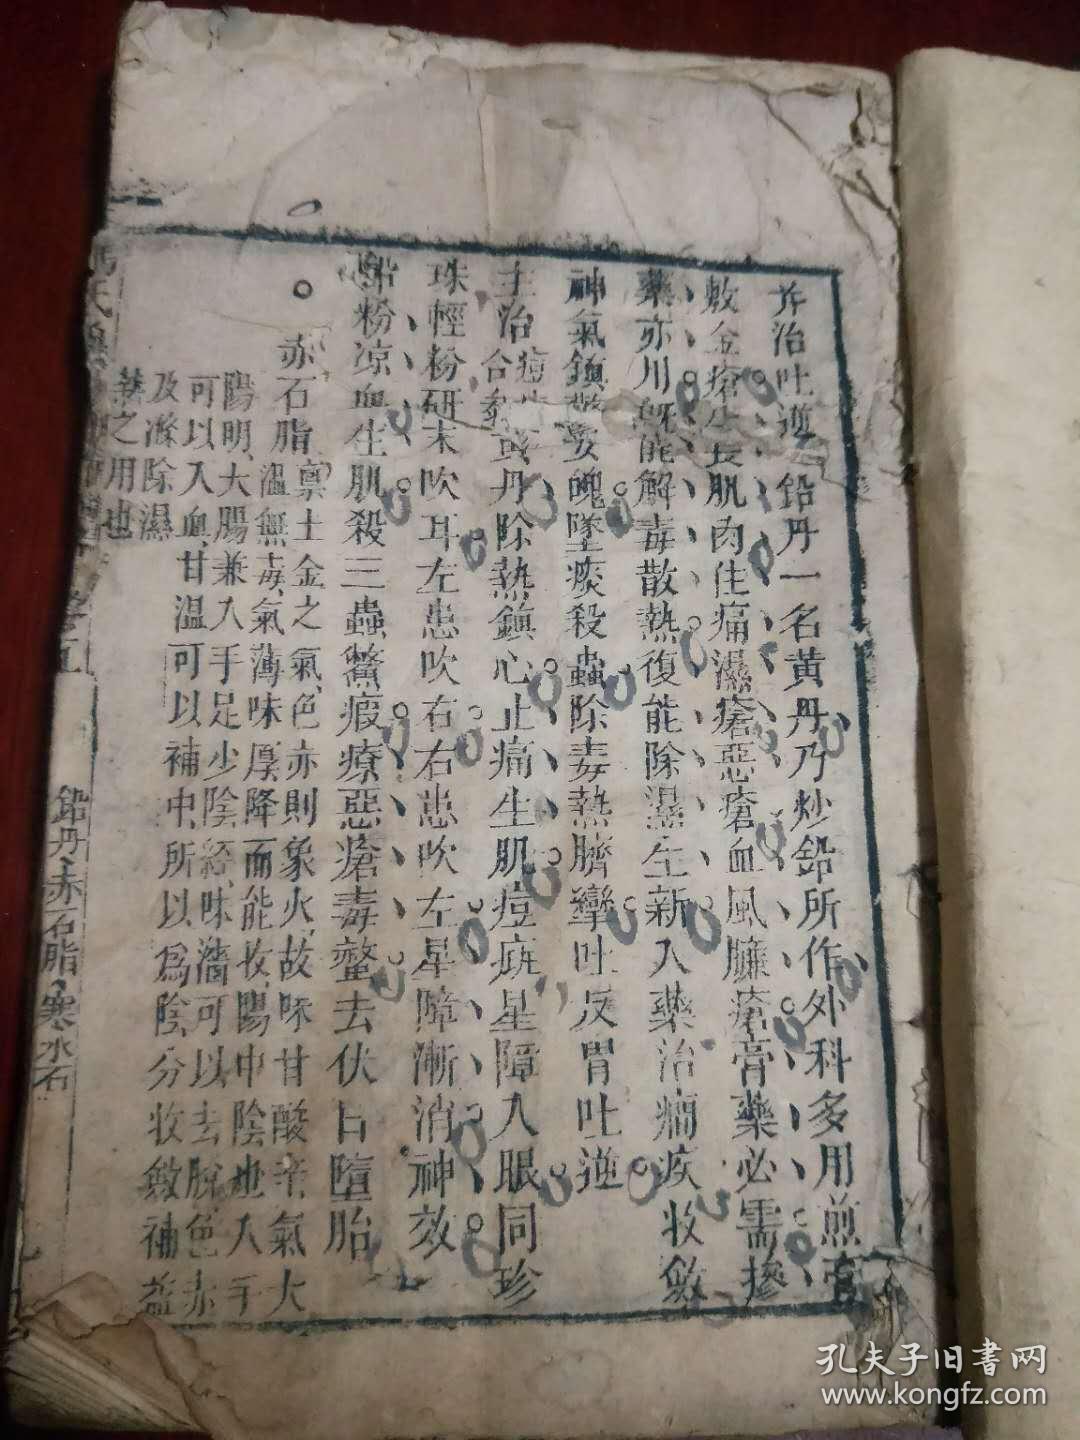 并治吐逆鉛丹一名黄丹乃炒鉛所作外科多用煎膏
敷金瘡生長肌肉住痛濕瘡惡瘡血風臁瘡膏藥必需摻
藥亦用既能解毒散熱復能除濕生新入藥治癎疾收斂
神氣鎮驚安魄墜痰殺蟲除毒熱臍攣吐反胃吐逆
主治丹除熱鎮心止痛生肌痘痲星障入眼同珍
珠輕粉研末吹耳左患吹右右患吹左星障漸消神效
鉛粉凉血生肌殺三蟲鱉瘕療惡瘡毒螫去伏尸墮胎
赤石脂
稟土金之氣色赤則象火故味甘酸辛氣大
溫無毒氣薄味厚降而能收陽中陰也入手
陽明大腸兼入手足少陰經味濇可以去脫色赤
可以入血甘溫可以補中所以為陰分收斂補益
及滌除濕
之用也
鉛丹赤石脂寒水石
孔夫子旧書网
www.kongfz.com